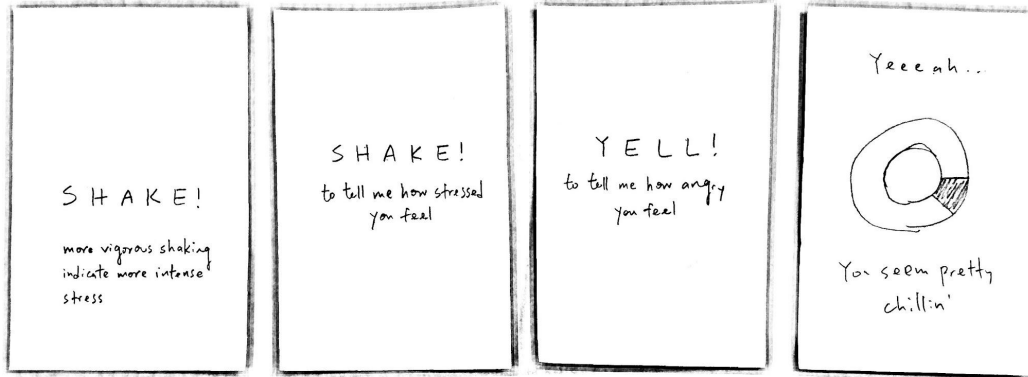 SHAKE!
more vigorous shaking
indicate more intense
stress
SHAKE!
to tell me how stressed
you feel
YELL!
to tell me how angry
you feel
Yeeeah...
You seem pretty
chillin'